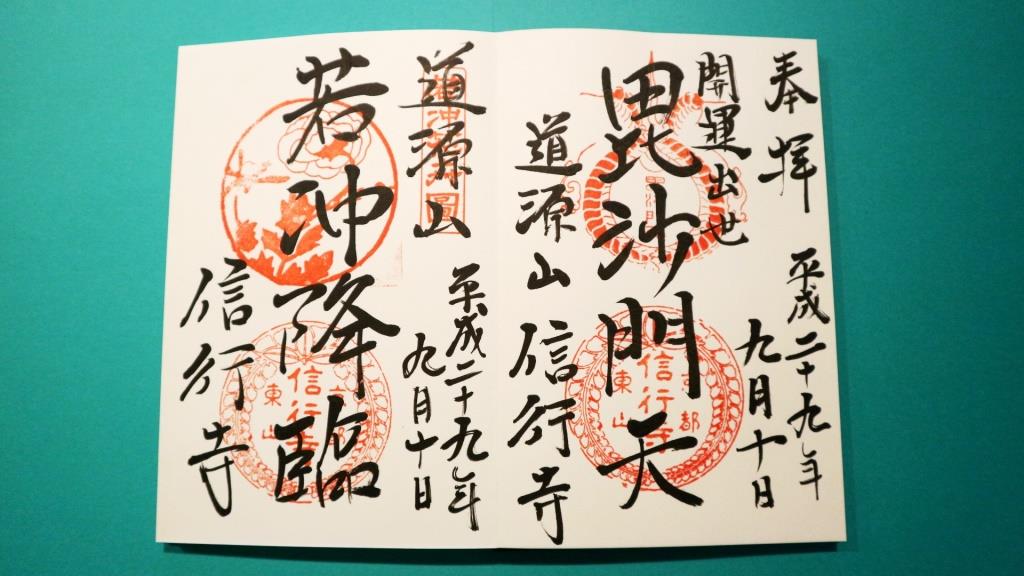 奉拝
平成二十九年
九月十日
開運出世
毘沙門天
道源山
信行寺
京都
信行寺
東山
道源山
平成二十九年
九月十日
若冲降臨
信行寺
京都
信行寺
東山